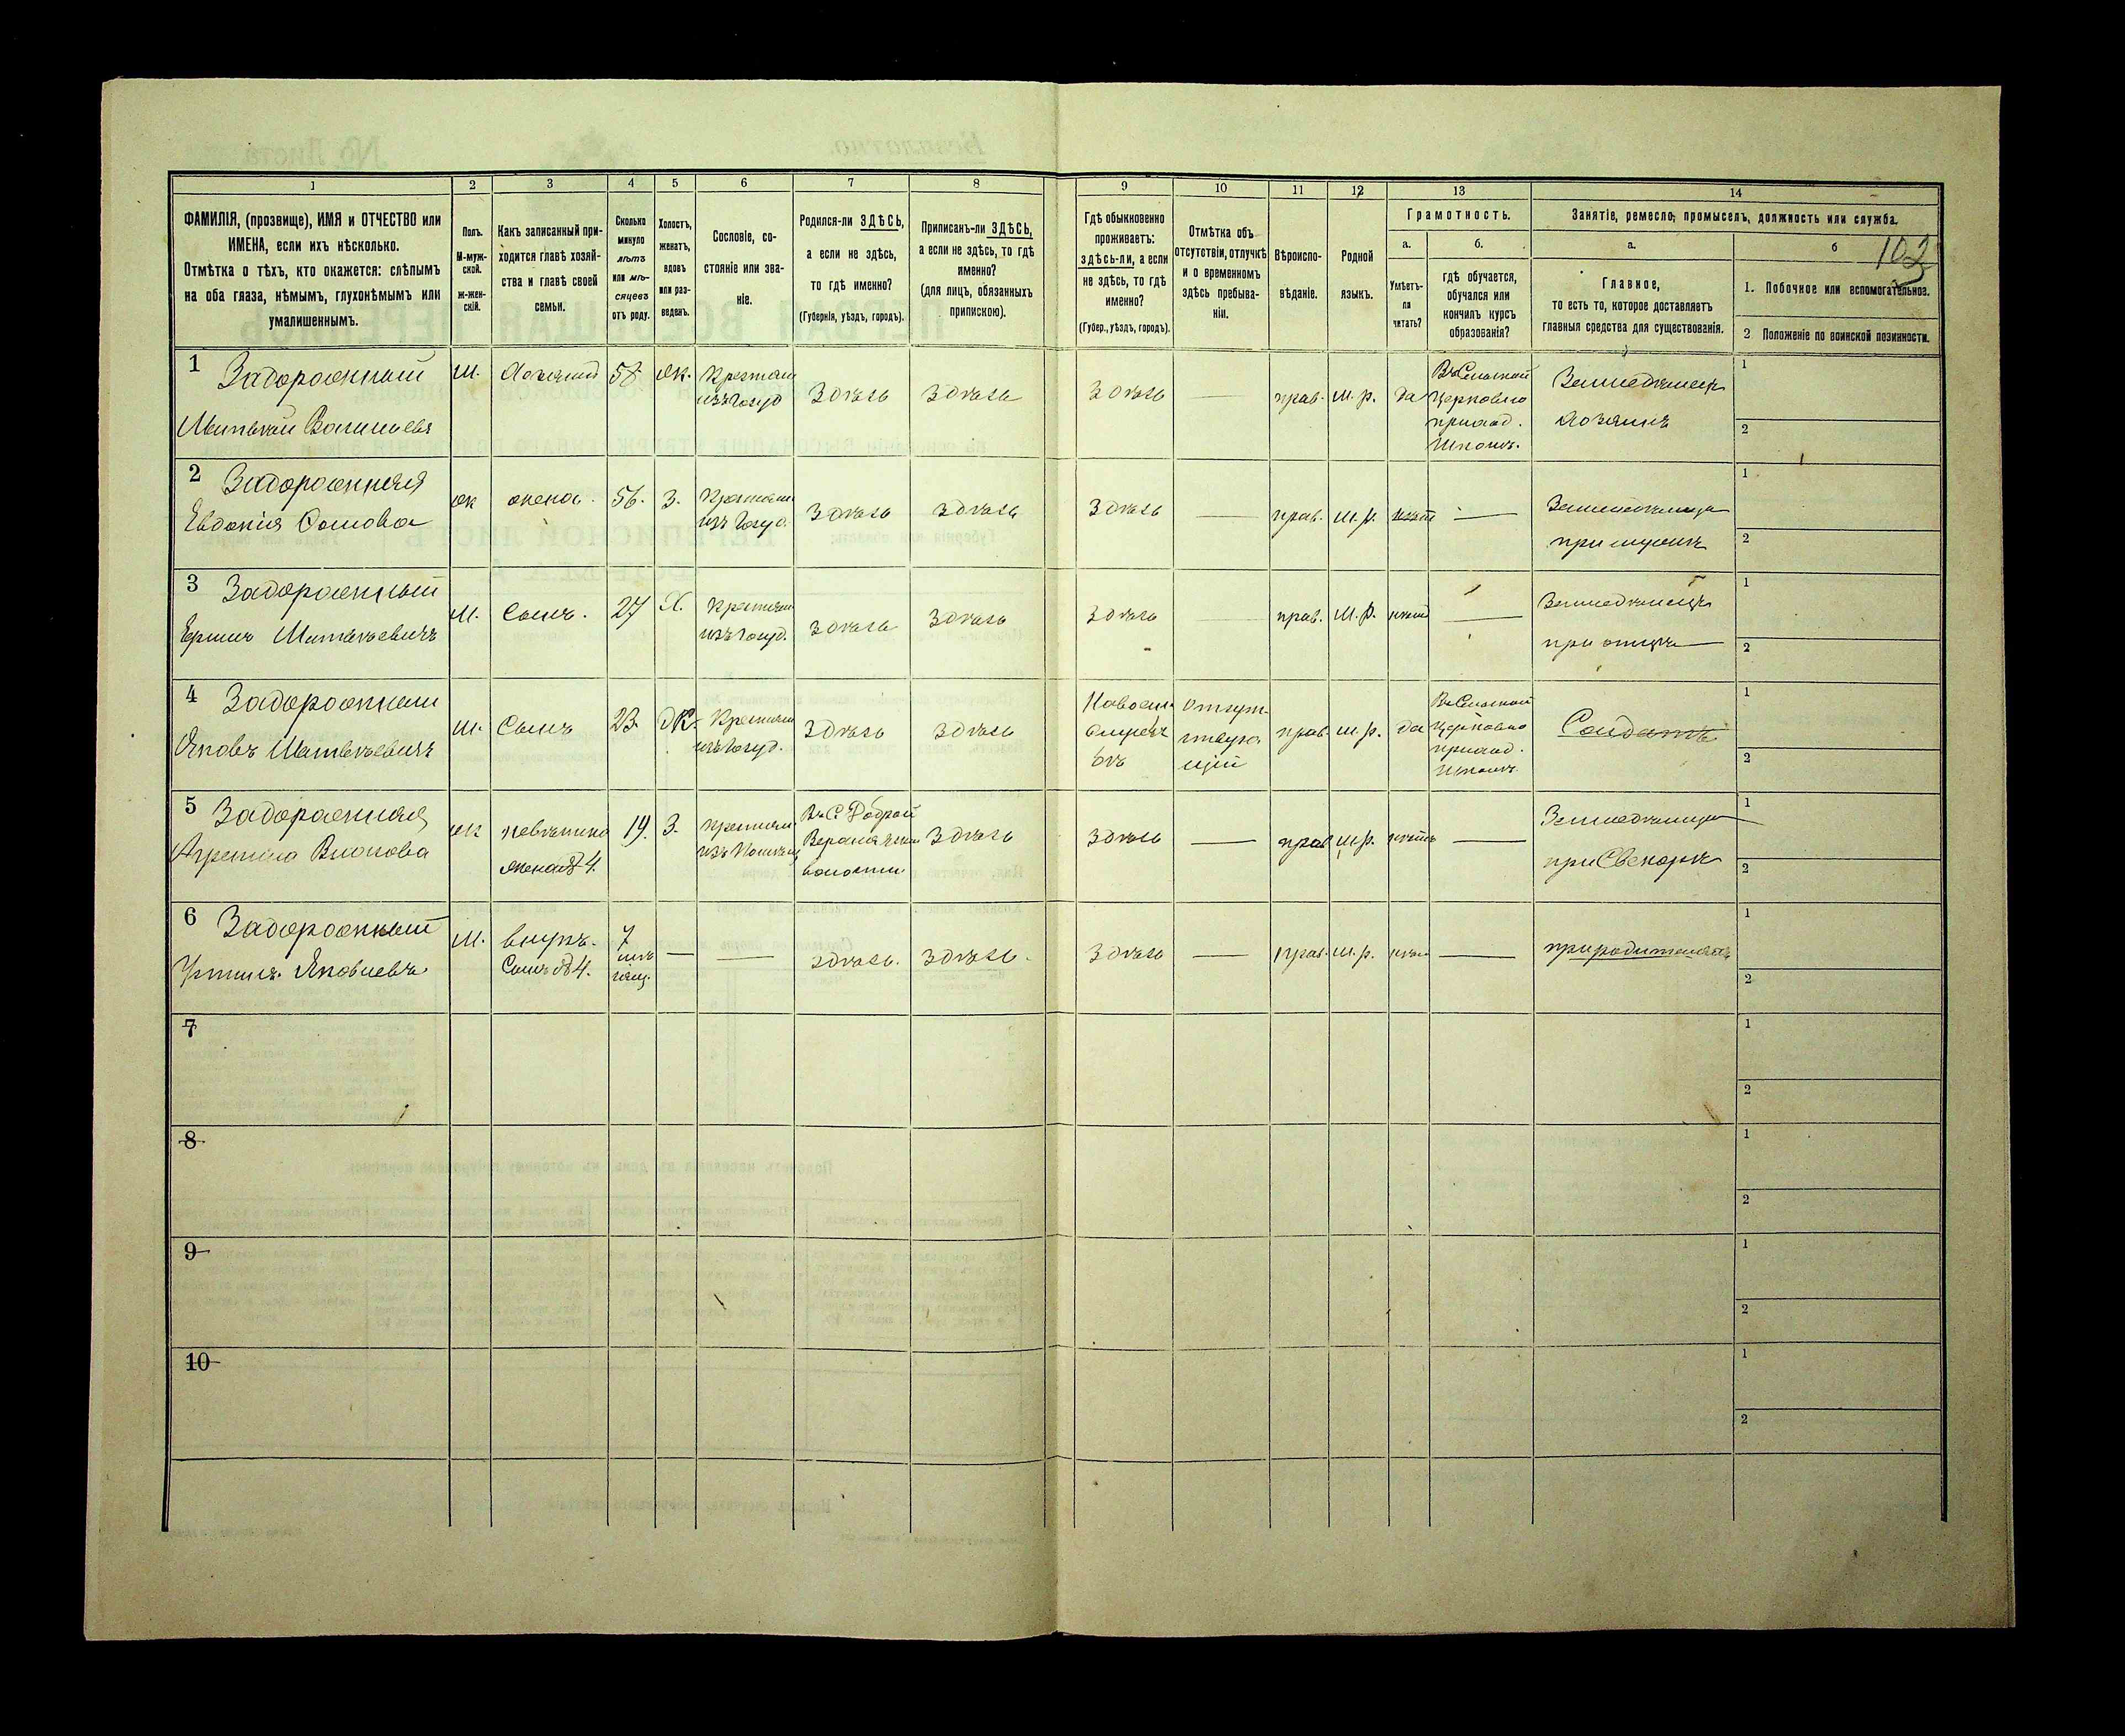 1 2 3 4 5 6 7 8 9 10 11 12 13 14
ФАМИЛІЯ, (прозвище), ИМЯ и ОТЧЕСТВО или
ИМЕНА, если ихъ нѣсколько.
Отмѣтка о тѣхъ, кто окажется: слѣпымъ
на оба глаза, нѣмымъ, глухонѣмымъ или
умалишеннымъ.
Полъ.
М-муж-
ской.
ж-жен-
скій.
Какъ записанный при-
ходится главѣ хозяй-
ства и главѣ своей
семьи.
Сколько
минуло
лѣтъ
или мѣ-
сяцевъ
отъ роду.
Холостъ,
женатъ,
вдовъ
или раз-
веденъ.
Сословіе, со-
стояніе или зва-
ніе.
Родился-ли ЗДѢСЬ,
а если не здѣсь,
то гдѣ именно?
(Губернія, уѣздъ, городъ).
Приписанъ-ли ЗДѢСЬ,
а если не здѣсь, то гдѣ
именно?
(для лицъ, обязанныхъ
припискою).
Гдѣ обыкновенно
проживаетъ:
здѣсь-ли, а если
не здѣсь, то гдѣ
именно?
(Губер., уѣздъ, городъ).
Отмѣтка объ
отсутствіи, отлучкѣ
и о временномъ
здѣсь пребыва-
ніи.
Вѣроиспо-
вѣданіе.
Родной
языкъ.
Грамотность.
а.
Умѣетъ-
ли
читать?
б.
гдѣ обучается,
обучался или
кончилъ курсъ
образованія?
Занятіе, ремесло, промыселъ, должность или служба.
а.
Главное,
то есть то, которое доставляетъ
главныя средства для существованія.
б
102
1. Побочное или вспомогательное.
2 Положеніе по воинской повинности.
1 Задорожный
Матвѣй Васильевъ
М.
Хозяинъ
58
Ж.
Крестьян
изъ Госуд
Здѣсь
Здѣсь
Здѣсь
прав.
м. р.
да
Въ Сельской
Церковно
приход.
Школѣ.
Земледѣлецъ
Хозяинъ
1
2
2 Задорожняя
Евдокія Сомова
ж
жена.
56.
З.
Крестьян
изъ Госуд.
Здѣсь
Здѣсь
Здѣсь
прав.
м. р.
нѣтъ
Земледѣлица
при мужѣ
1
2
3 Задорожный
Матвѣевичъ
М.
Сынъ.
27
Х.
Крестьян
изъ Госуд.
Здѣсь
Здѣсь
Здѣсь
прав.
м. р.
нѣтъ
Земледѣлецъ
при отцѣ
1
2
4 Задорожный
Яковъ Матвѣевичъ
М.
Сынъ
23
Ж.
Крестьян
изъ Госуд.
Здѣсь
Здѣсь
Отсут-
ствую
щій
прав.
м. р.
да
Въ Сельской
Церковно
приход.
Школѣ.
Солдатъ
1
2
5 Задорожняя
ж
невѣстка
жена № 4.
19.
З.
Крестьян
Въ С. Доброй
волости
Здѣсь
Здѣсь
прав
м. р.
нѣтъ
Земледѣлица
при Свекорѣ
1
2
6 Задорожный
Устинъ Яковлевъ
М.
внукъ.
Сынъ № 4.
7
мѣ
сяц.
здѣсь.
Здѣсь.
Здѣсь
прав.
м. р.
нѣтъ
при родителяхъ
1
2
7
1
2
8
1
2
9
1
2
10
1
2